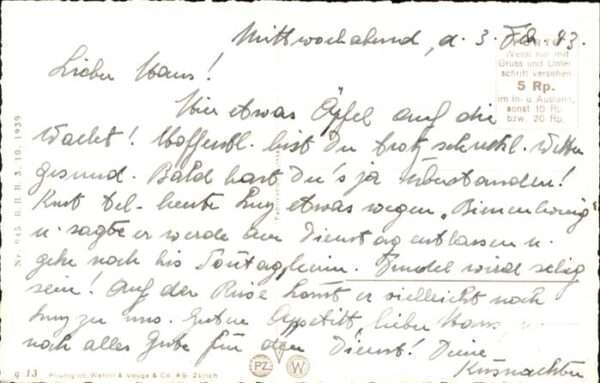 Mittwochabend, d. 3. Feb. 43.
PORTO
Wenn nur mit
Gruss und Unter-
schrift versehen
5 Rp.
im In- u. Ausland,
sonst 10 Rp.
bzw. 20 Rp.
Lieber Hans!
Hier etwas Öpfel auf die
Wacht! Hoffentl. bist Du trotz schreckl. Wetter
gesund. Bald hast Du's ja überstanden!
Kurt tel. heute etwas wegen „Bienenhonig"
u. sagte er werde am Dienstag entlassen u.
gehe noch bis Sonntag heim. wird selig
sein! Auf der Reise kommt er vielleicht noch
zu uns. Guten Appetitt, lieber Hans
noch alles Gute für den Dienst! Deine
Küsnachter
Nr. 945 B.R.B. 3. 10. 1939
q 13
& Co. AG. Zürich
PZ
W